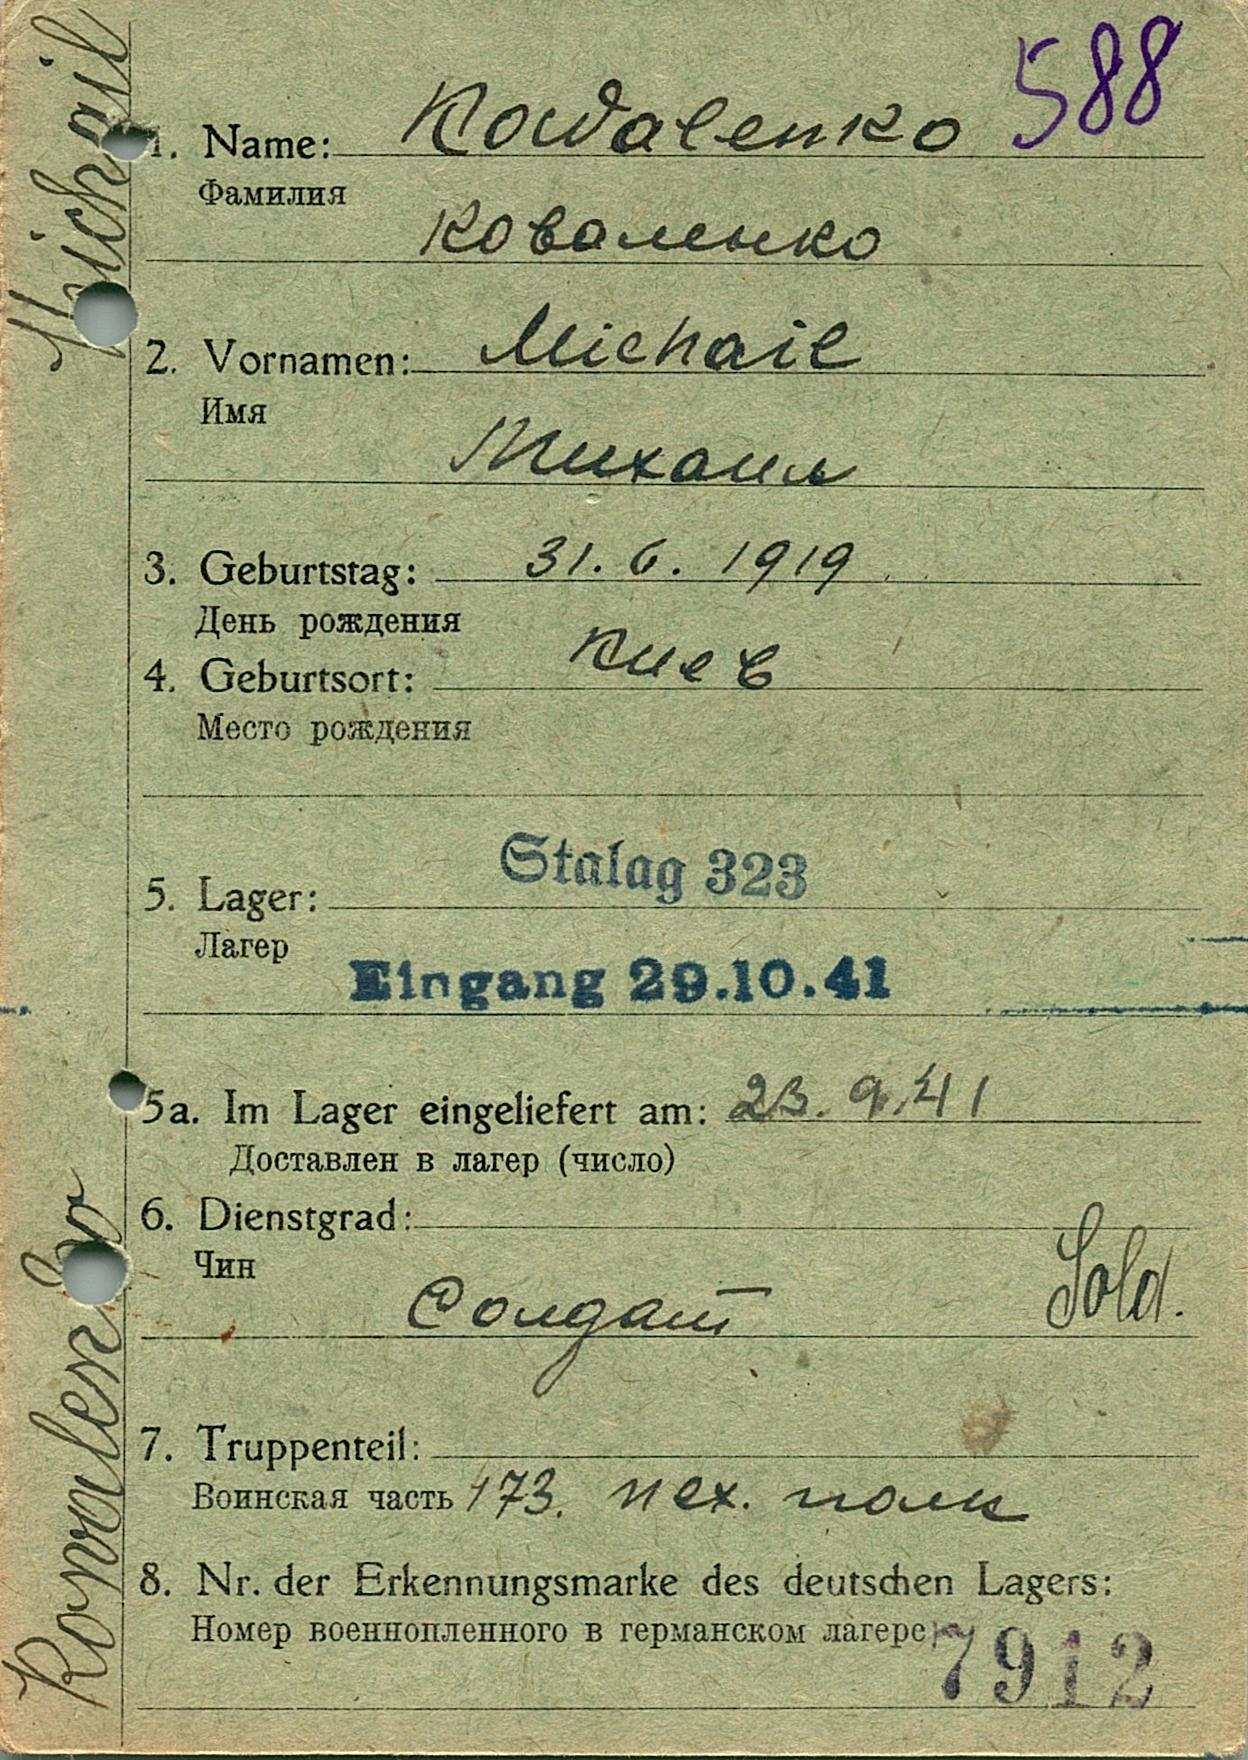 588
1. Name: Kowalenko
Фамилия
Коваленко
2. Vornamen: Michail
Имя
Михаил
3. Geburtstag: 31. 6. 1919
День рождения
4. Geburtsort: Киев
Место рождения
Stalag 323
5. Lager:
Лагер
Eingang 29.10.41
5a. Im Lager eingeliefert am: 23. 9. 41
Доставлен в лагер (число)
6. Dienstgrad:
Чин
Солдат Sold.
7. Truppenteil:
Воинская часть 173. пех. полк
8. Nr. der Erkennungsmarke des deutschen Lagers:
Номер военнопленного в германском лагере
7912
Kowalenko Michail